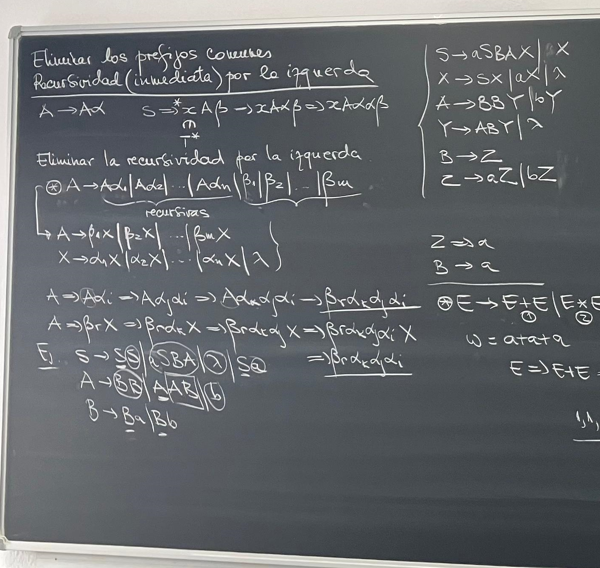 Eliminar los prefijos comunes
Recursividad (inmediata) por la izquerda
A → Aα S ⇒* xAβ → xAαβ ⇒ xAααβ
T*
Eliminar la recursividad por la izquerda.
⊛ A → Aα1 | Aα2 | ... | Aαn | β1 | β2 | ... | βm
recursivas
A → β1X | β2X | ... | βmX
X → α1X | α2X | ... | αnX | λ
A ⇒ Aαi ⇒ Aαjαi ⇒ Aαkαjαi → βrαkαjαi
A ⇒ βrX ⇒ βrαkX ⇒ βrαkαjX ⇒ βrαkαjαiX
⇒ βrαkαjαi
Ej S → SS | aSBA | λ | Sa
A → BB | AAB | b
B → Ba | Bb
S → aSBAX | X
X → SX | aX | λ
A → BBY | bY
Y → ABY | λ
B → Z
Z → aZ | bZ
Z ⇒ a
B → a
⊛ E → E+E | E*E
① ②
w = a+a+a
E ⇒ E+E =
1,1,